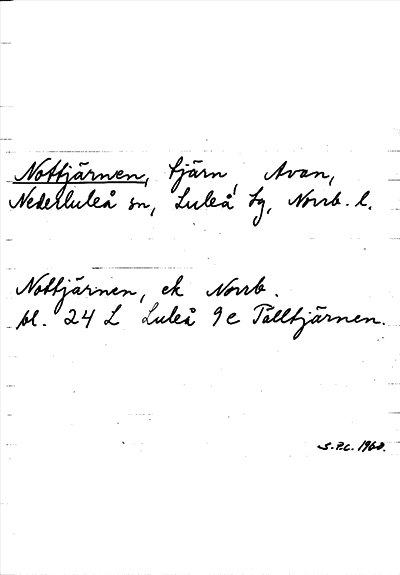 Nottjärnen, tjärn, Avan,
Nederluleå sn, Luleå tg, Norrb. l.
Nottjärnen, ek Norrb.
bl. 24 L Luleå 9 c Talltjärnen.
S.P.C. 1960.